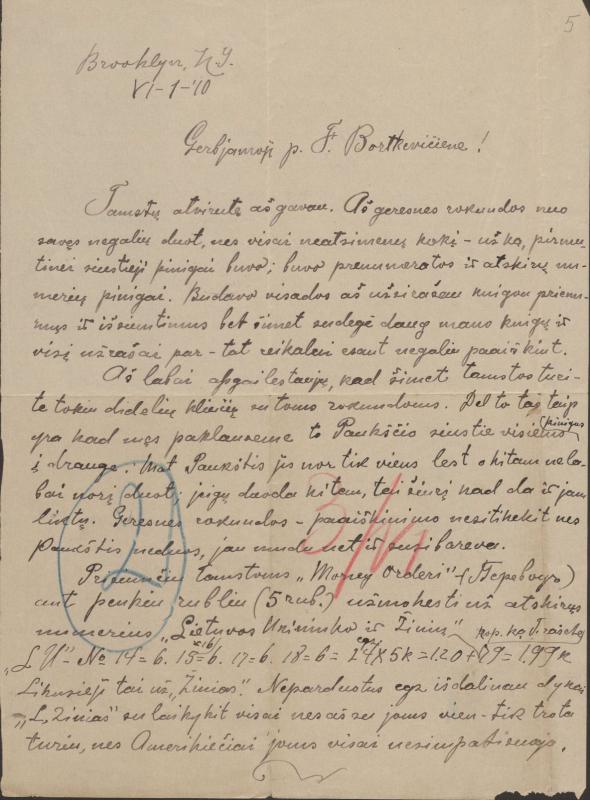 5
Brooklyn, N.Y.
VI-1-'10
Gerbjamoji p. F. Bortkevičiene!
Tamstų atvirutę aš gavau. Aš geresnes rokundos nuo
savęs negaliu duot, nes visai neatsimenu kokį - už ką, pirmu-
tinei siustieji pinigai buvo; buvo prenumeratos ir atskirų nu-
merių pinigai. Budavo visados aš užsirašau knigon priemi-
mus ir išsiuntimus bet šimet sudegė daug mano knigų ir
visį užrašai par-tat reikalui esant negaliu paaiškint.
Aš labai apgailestauju, kad šimet tamstos turi-
te tokiu dideliu kliučių su toms rokundoms. Del to tas teip
yra kad męs paklauseme to Paukščio siustie visiems pinigus
į drauge. Mat Paukštis jis nor tik viens lest o kitam nela-
bai norį duot; jeigu duoda kitam, tai žiuri kad da ir jam
liktų. Geresnes rokundos - paaiškinimo nesitikekit nes
Paukštis neduos, jau mudu net ir susibareva.
Prisiunčiu tamstoms "Money Orderi" - (Переводъ)
ant penkiu rubliu (5 rub.) užmokesti už atskirus
numerius "Lietuvos Ukininko ir Žinių" kop. ką T. raščiaj
"L U" - No 14=6. 15=6. 16 17=6. 18=6 = 24 egz X5k=1.20+79=1.99k
Likusieji tai už "Žinias". Neparduotus egz išdalinau dykai
"L. Žinias" sulaikykit visai nes aš su joms vien-tik trotą
turiu, nes Amerikiečiai joms visai nesimpatizuoja.
2
3/VI